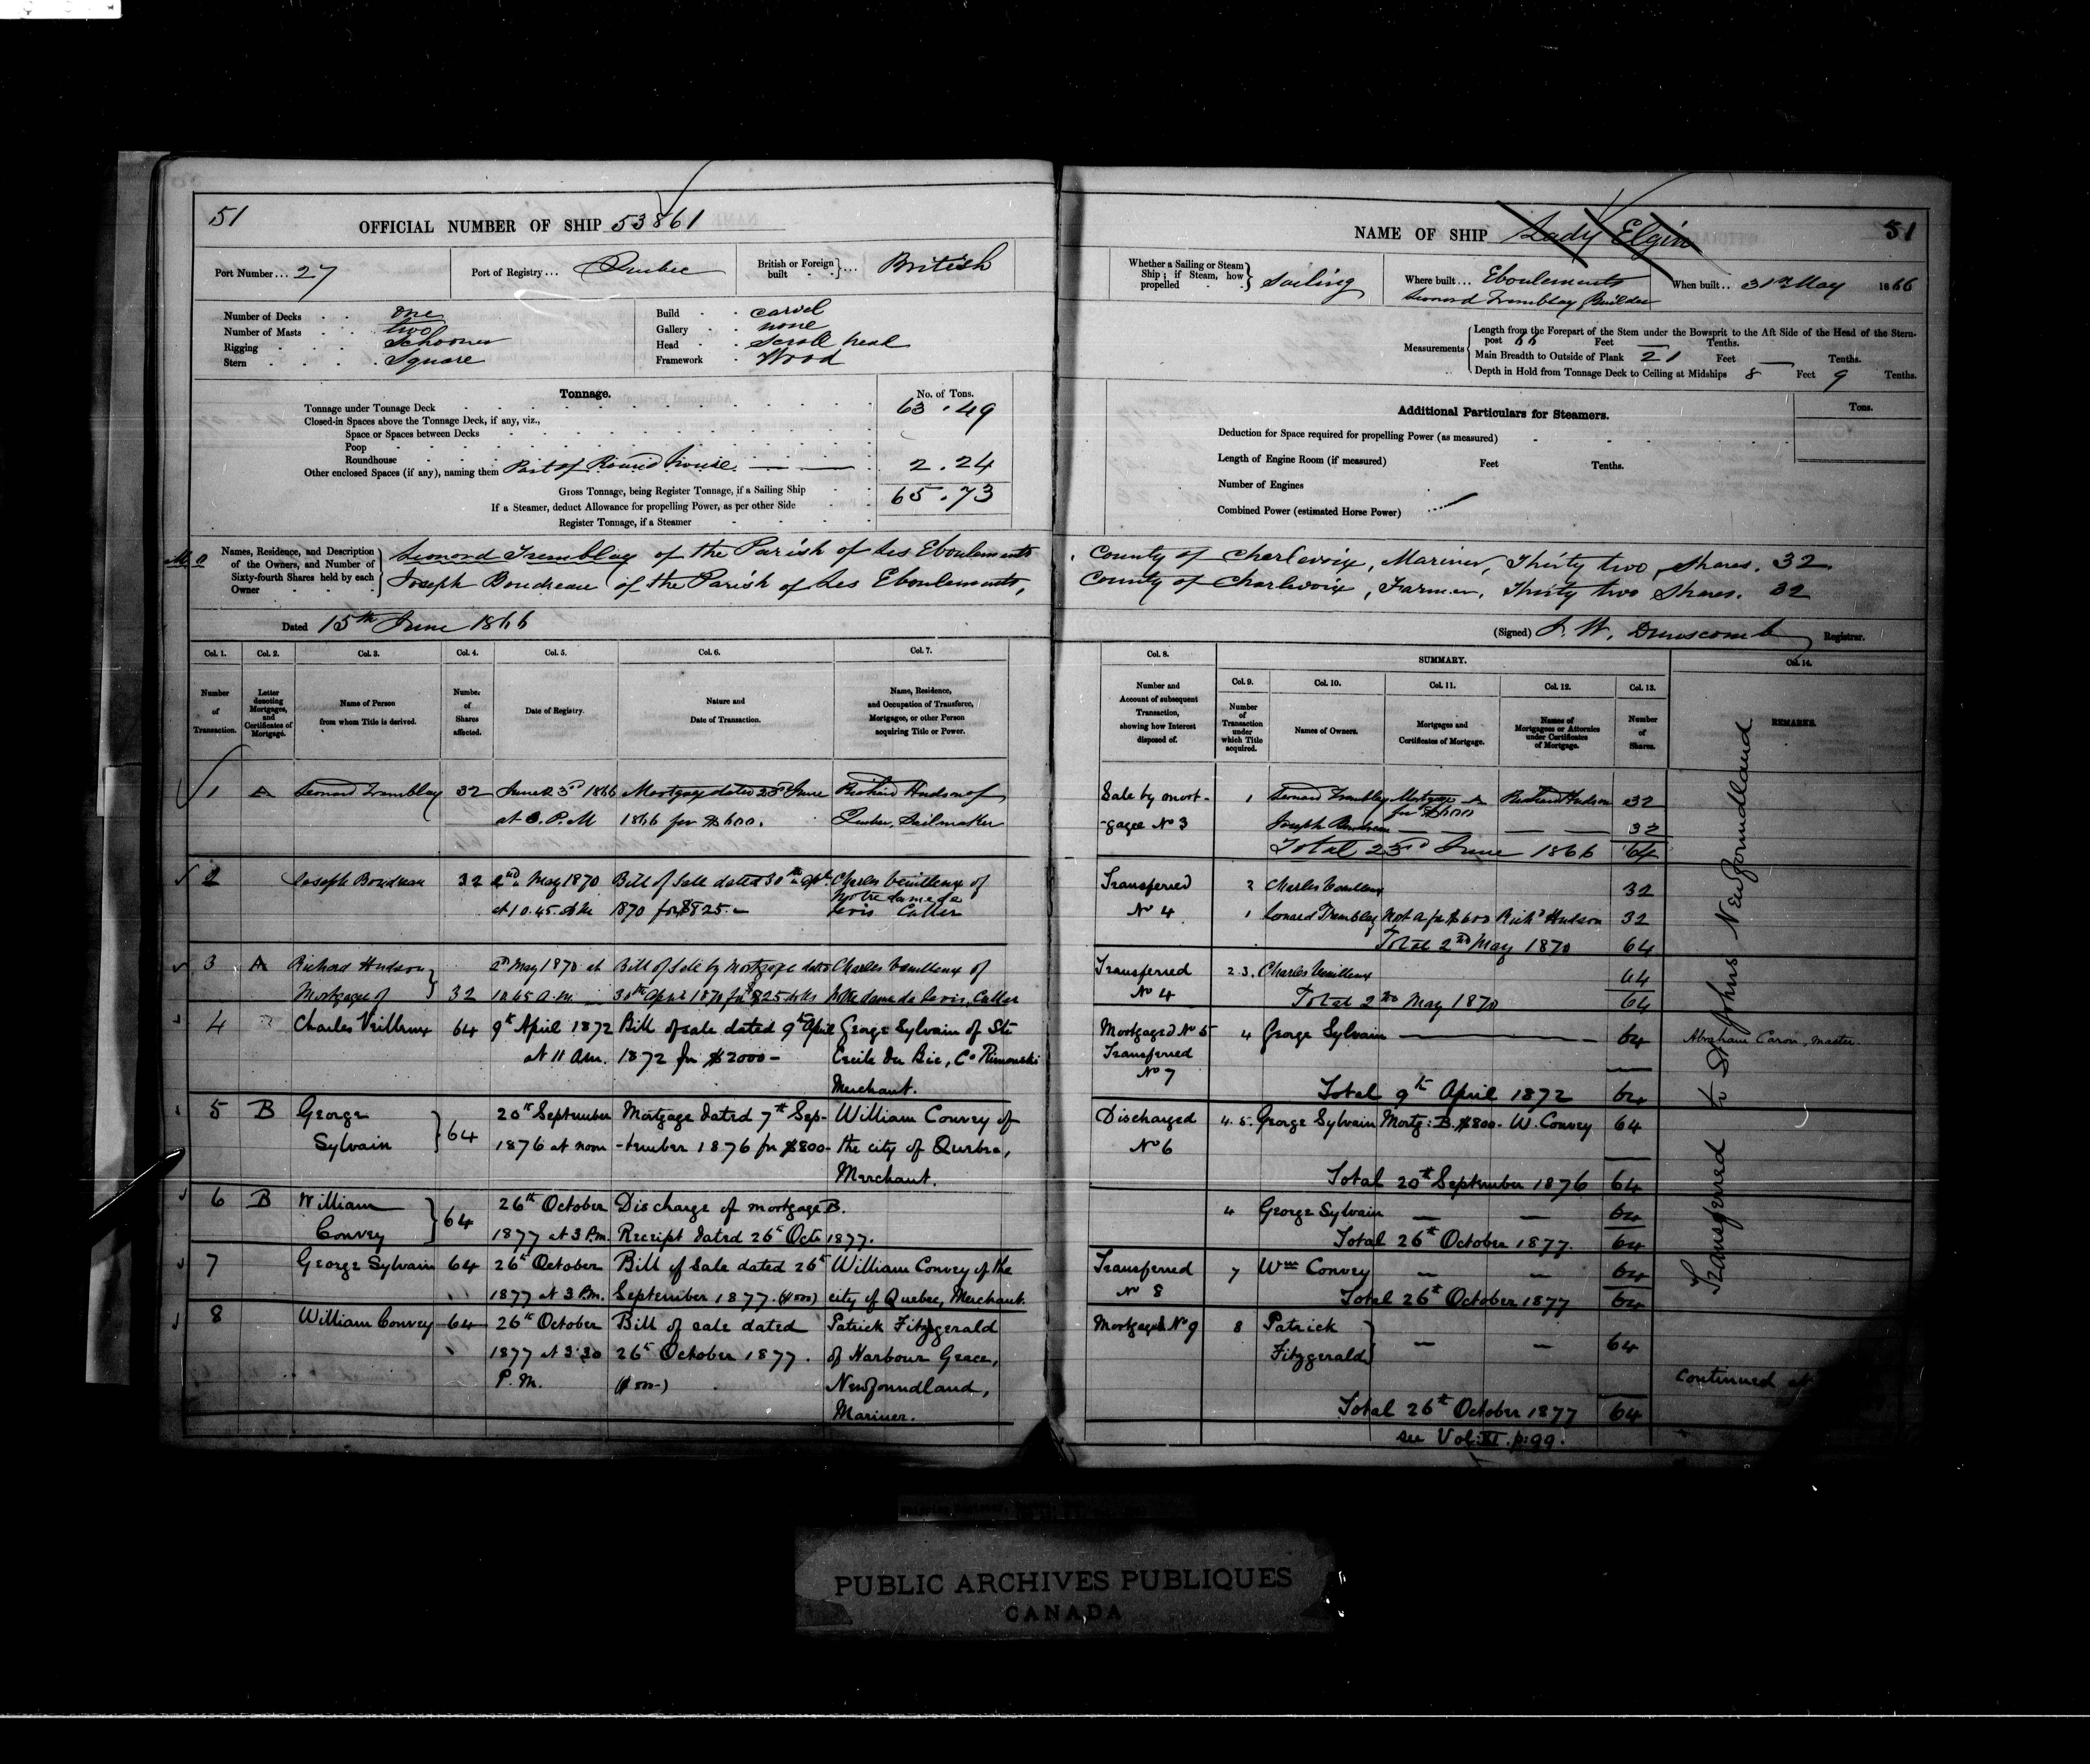 51
OFFICIAL NUMBER OF SHIP 53861
Port Number... 27
Port of Registry... Quebec
British or Foreign built } ... British
Number of Decks . . one
Number of Masts . . two
Rigging . . Schooner
Stern . . . . Square
Build . . carvel
Gallery . . none
Head . . Scroll head
Framework . Wood
Tonnage.
No. of Tons.
Tonnage under Tonnage Deck 63.49
Closed-in Spaces above the Tonnage Deck, if any, viz.,
Space or Spaces between Decks
Poop
Roundhouse
Other enclosed Spaces (if any), naming them Part of Round house. 2.24
Gross Tonnage, being Register Tonnage, if a Sailing Ship 65.73
If a Steamer, deduct Allowance for propelling Power, as per other Side
Register Tonnage, if a Steamer
Names, Residence, and Description of the Owners, and Number of Sixty-fourth Shares held by each Owner
Leonard Tremblay of the Parish of Les Eboulements
Joseph Boudreau of the Parish of Les Eboulements,
Dated 15th June 1866
Col. 1. Col. 2. Col. 3. Col. 4. Col. 5. Col. 6. Col. 7.
Number of Transaction.
Letter denoting Mortgages, and Certificates of Mortgage.
Name of Person from whom Title is derived.
Number of Shares affected.
Date of Registry.
Nature and Date of Transaction.
Name, Residence, and Occupation of Transferee, Mortgagee, or other Person acquiring Title or Power.
1 A Leonard Tremblay 32 June 23rd 1866 Mortgage dated 23rd June Richard Hudson of
at 3. P.M 1866 for $600. Quebec, Sailmaker
2 Joseph Boudreau 32 2nd May 1870 Bill of Sale dated 30th Charles Veilleux of
Notre Dame de
at 10.45. 1870 for $825.- Levis Culler
3 A Richard Hudson 2nd May 1870 at Bill of Sale by Mortgagee dated Charles Veilleux of
Mortgagee of 32 10.45 a.m. 30th April 1870 for $825 Notre dame de Levis, Culler
4 Charles Veilleux 64 9th April 1872 Bill of sale dated 9th April George Sylvain of Ste
at 11 am. 1872 for $2000- Cecile du Bic, Co Rimouski
Merchant.
5 B George 20th September Mortgage dated 7th Sep- William Convey of
Sylvain 64 1876 at noon -tember 1876 for $800- the city of Quebec,
Merchant.
6 B William 26th October Discharge of mortgage B.
Convey 64 1877 at 3 P.m. Receipt dated 26th Octr 1877.
7 George Sylvain 64 26th October Bill of Sale dated 26th William Convey of the
1877 at 3 P.m. September 1877. city of Quebec, Merchant.
8 William Convey 64 26th October Bill of sale dated Patrick Fitzgerald
1877 at 3.30 26th October 1877. of Harbour Grace,
P.M. Newfoundland,
Mariner.
NAME OF SHIP Lady Elgin 51
Whether a Sailing or Steam Ship; if Steam, how propelled } Sailing
Where built... Eboulements
Leonard Tremblay Builder
When built.. 31st May 1866
Measurements
Length from the Forepart of the Stem under the Bowsprit to the Aft Side of the Head of the Stern-
post 66 Feet — Tenths.
Main Breadth to Outside of Plank 21 Feet — Tenths.
Depth in Hold from Tonnage Deck to Ceiling at Midships 8 Feet 9 Tenths.
Additional Particulars for Steamers.
Tons.
Deduction for Space required for propelling Power (as measured)
Length of Engine Room (if measured) Feet Tenths.
Number of Engines
Combined Power (estimated Horse Power)
County of Charlevoix, Mariner, Thirty two Shares. 32
County of Charlevoix, Farmer, Thirty two Shares. 32
(Signed) J. W. Dunscomb Registrar.
Col. 8. SUMMARY. Col. 14.
Col. 9. Col. 10. Col. 11. Col. 12. Col. 13.
Number and Account of subsequent Transaction, showing how Interest disposed of.
Number of Transaction under which Title acquired.
Names of Owners.
Mortgages and Certificates of Mortgage.
Names of Mortgagees or Attornies under Certificates of Mortgage.
Number of Shares.
REMARKS.
Sale by mort- 1 Leonard Tremblay Mortgage A Richard Hudson 32
for $600
-gagee No 3 Joseph Boudreau — — — 32
Total 23rd June 1866 64
Transferred 2 Charles Veilleux 32
No 4 1 Leonard Tremblay Mort A for $600 Richd Hudson 32
Total 2nd May 1870 64
Transferred 2 3. Charles Veilleux 64
No 4 Total 2nd May 1870 64
Mortgaged No 5 4 George Sylvain — 64 Abraham Caron, master
Transferred
No 7
Total 9th April 1872 64
Discharged 4. 5. George Sylvain Mortg: B. $800- W. Convey 64
No 6
Total 20th September 1876 64
4 George Sylvain — — 64
Total 26th October 1877. 64
Transferred 7 Wm Convey — — 64
No 8 Total 26th October 1877 64
Mortgaged No 9 8 Patrick
Fitzgerald — — 64
Continued at
Total 26th October 1877 64
see Vol: XI. p: 99.
Transferred to St Johns Newfoundland
PUBLIC ARCHIVES PUBLIQUES
CANADA